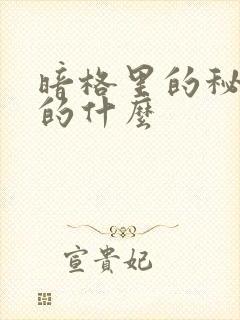 暗格里的秘
的什麼
宣貴妃